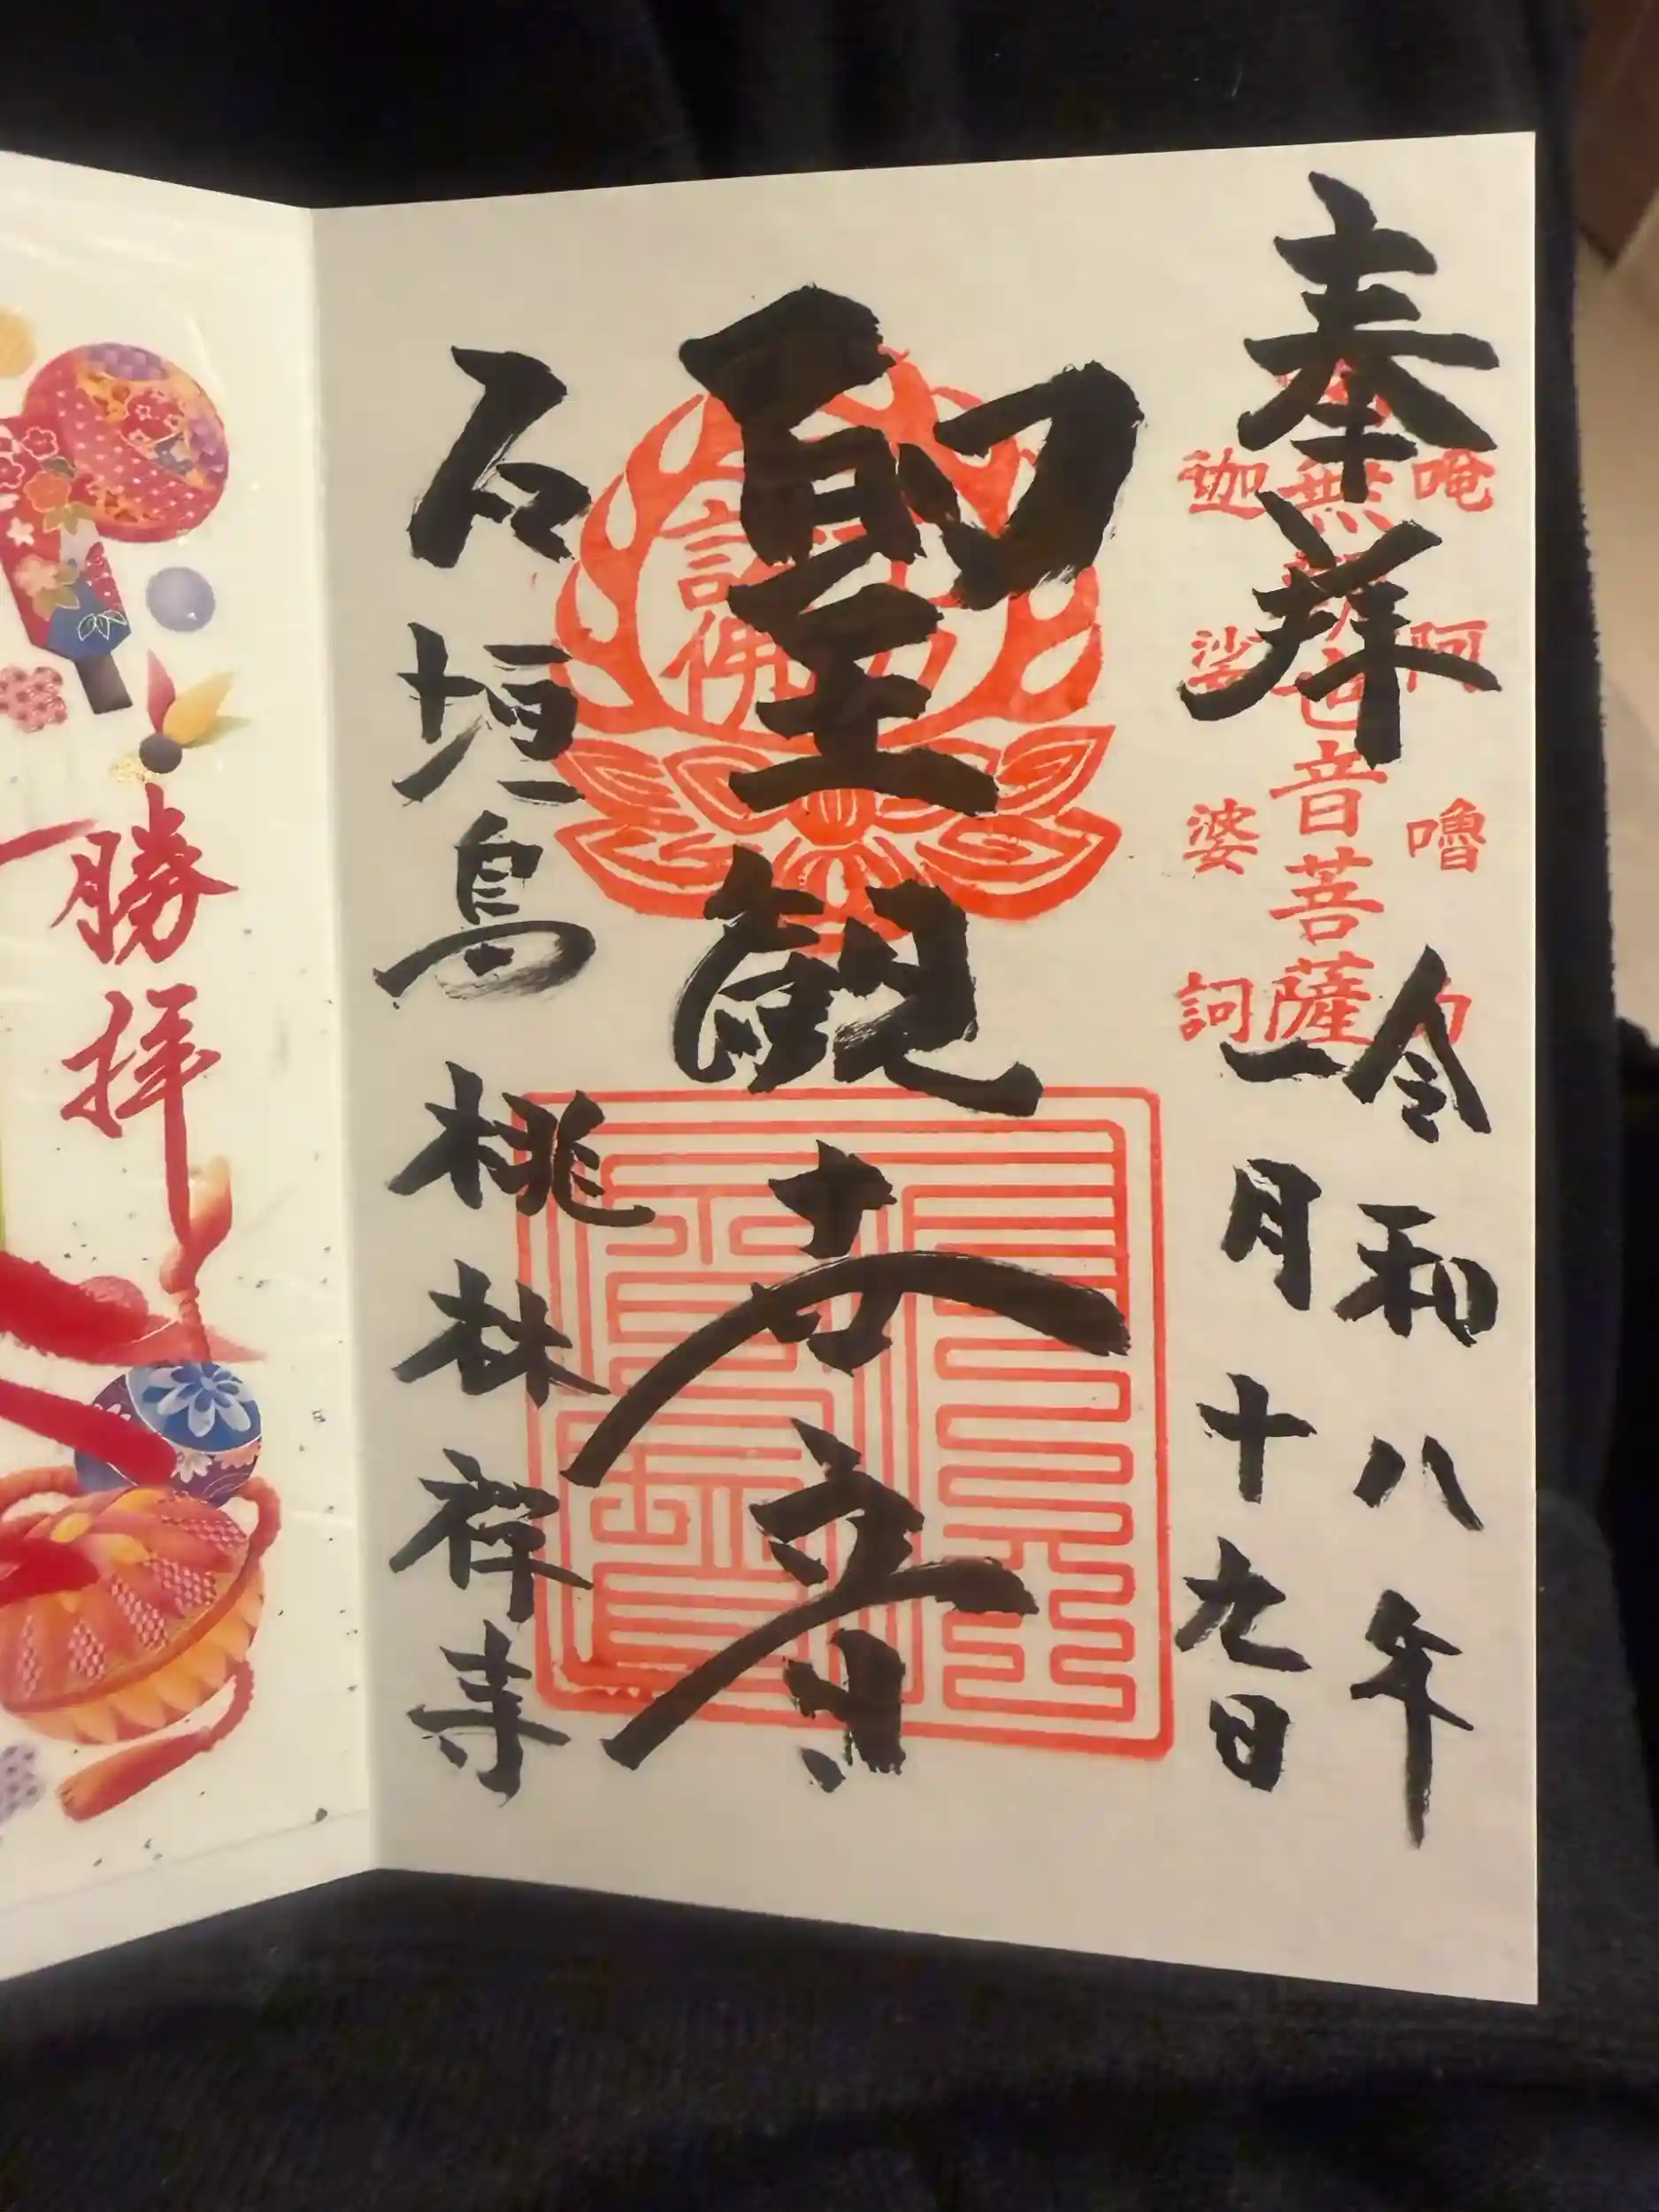 奉拝
令和八年
一月十九日
唵阿嚕力
南無観世音菩薩
迦娑婆訶
聖観世音
石垣島
桃林禅寺
勝拝